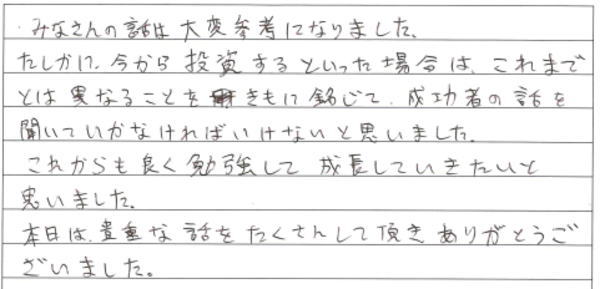 ・みなさんの話は大変参考になりました。
たしかに、今から投資するといった場合は、これまで
とは異なることをきもに銘じて、成功者の話を
聞いていかなければいけないと思いました。
これからも良く勉強して成長していきたいと
思いました。
本日は、貴重な話をたくさんして頂きありがとうご
ざいました。